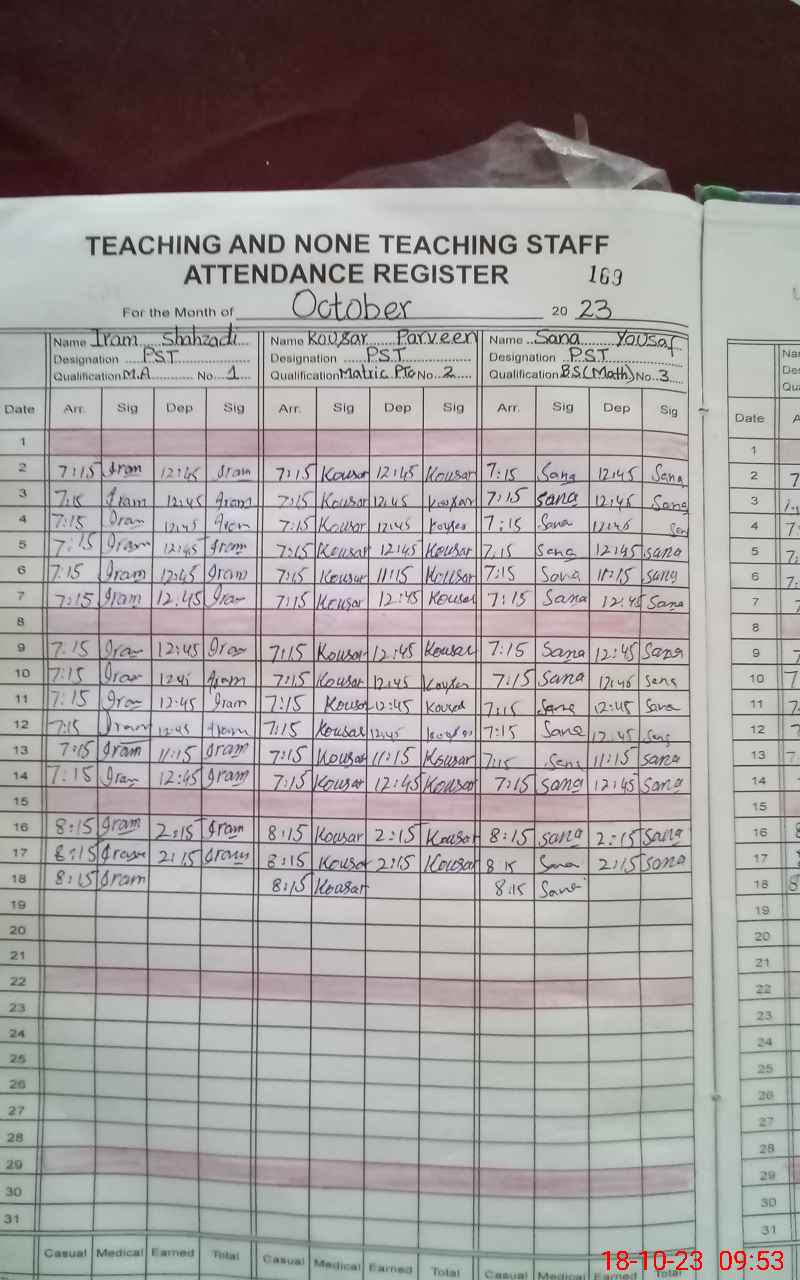 TEACHING AND NONE TEACHING STAFF
ATTENDANCE REGISTER 169
For the Month of October 20 23
Name Iram Shahzadi Name Kousar Parveen Name Sana Yousaf
Designation PST Designation PST Designation PST
Qualification M.A No. 1 Qualification Matric PTC No. 2 Qualification B.S (Math) No. 3
Date Arr. Sig Dep Sig Arr. Sig Dep Sig Arr. Sig Dep Sig Date
1 1
2 7:15 Iram 12:45 Iram 7:15 Kousar 12:45 Kousar 7:15 Sana 12:45 Sana 2
3 7:15 Iram 12:45 Iram 7:15 Kousar 12:45 Kousar 7:15 Sana 12:45 Sana 3
4 7:15 Iram 12:45 Iram 7:15 Kousar 12:45 Kousar 7:15 Sana 12:45 4
5 7:15 Iram 12:45 Iram 7:15 Kousar 12:45 Kousar 7:15 Sana 12:45 Sana 5
6 7:15 Iram 12:45 Iram 7:15 Kousar 11:15 Kousar 7:15 Sana 11:15 Sana 6
7 7:15 Iram 12:45 Iram 7:15 Kousar 12:45 Kousar 7:15 Sana 12:45 Sana 7
8 8
9 7:15 Iram 12:45 Iram 7:15 Kousar 12:45 Kousar 7:15 Sana 12:45 Sana 9
10 7:15 Iram 12:45 Iram 7:15 Kousar 12:45 Kousar 7:15 Sana 12:45 Sana 10
11 7:15 Iram 12:45 Iram 7:15 Kousar 12:45 Kousar 7:15 Sana 12:45 Sana 11
12 7:15 Iram 12:45 Iram 7:15 Kousar 12:45 Kousar 7:15 Sana 12:45 Sana 12
13 7:15 Iram 11:15 Iram 7:15 Kousar 11:15 Kousar 7:15 Sana 11:15 Sana 13
14 7:15 Iram 12:45 Iram 7:15 Kousar 12:45 Kousar 7:15 Sana 12:45 Sana 14
15 15
16 8:15 Iram 2:15 Iram 8:15 Kousar 2:15 Kousar 8:15 Sana 2:15 Sana 16
17 8:15 Iram 2:15 Iram 8:15 Kousar 2:15 Kousar 8 15 Sana 2:15 Sana 17
18 8:15 Iram 8:15 Kousar 8:15 Sana 18
19 19
20 20
21 21
22 22
23 23
24 24
25 25
26 26
27 27
28 28
29 29
30 30
31 31
Casual Medical Earned Total Casual Medical Earned Total Casual Medical Earned Total
18-10-23 09:53